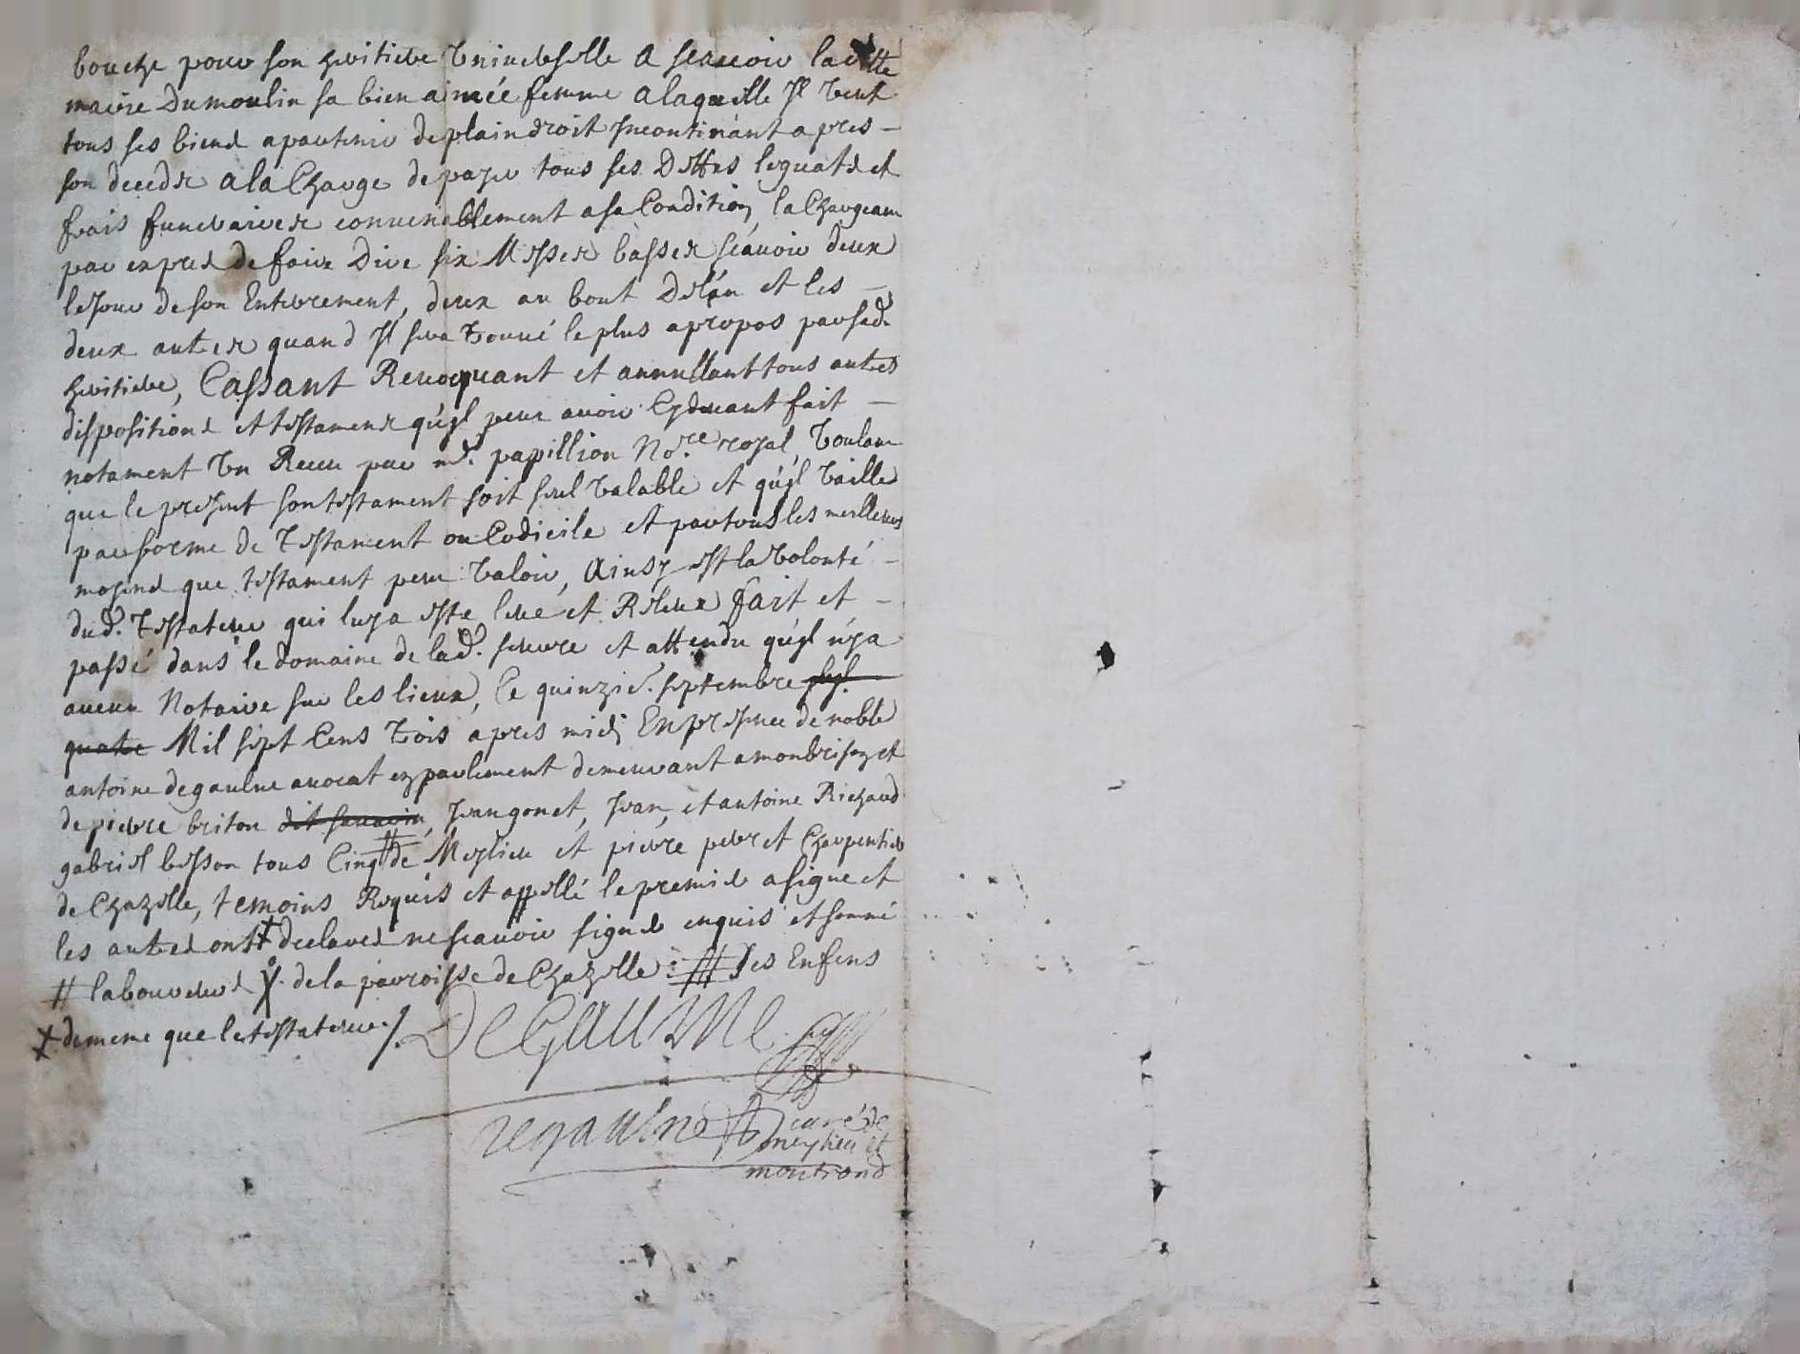 bouche pour son heritiere Universelle a scavoir la ditte
marie Dumoulin sa bien aimée femme a laquelle Il veut
tous ses biens apartenir de plain droit Incontinant apres —
son deceds a la Charge de payer tous ses Dettes leguats et
frais funeraires convenablement a sa Condition, la Chargeant
par expres de faire Dire six Messes basses scavoir deux
le Jour de son Enterrement, deux au bout De l'an et les —
deux autres quand Il sera trouvé le plus apropos par sad.
heritiere, Cassant Revoquant et annullant tous autres
dispositions et testamens qu'yl peut avoir Cydevant fait —
notament Un Receu par me. papillion No.re royal, Voulant
que le present son testament soit seul Valable et qu'yl Vaille
par forme de Testament ou Codicile et par tous les meilleurs
moyens que testament peut Valoir, Ainsy est la Volonté —
dud. Testateur qui luy a este leue et Releue fait et —
passé dans le domaine de lad. seuvre et attendu qu'yl n'y a
aucun Notaire sur les lieux, Ce quinzie. septembre
quatre Mil sept Cens trois apres midy En presence de noble
antoine degaulne avocat en parlement demeurant a monbrison et
de pierre briton dit , Jean gonet, Jean, et antoine Richaud
gabriel besson tous Cinq # de Meylieu et pierre peret Charpentier
de Chazelle, temoins Requis et appellé le premier a signe et
les autres ont ⵜ declarés ne scavoir signer enquis et sommé
# laboureurs . de la parroisse de Chazelle : # Ses Enfens
ⵜ de meme que le testateur ./. DEGAULNE
degaulne curé de
meylieu et
montrond